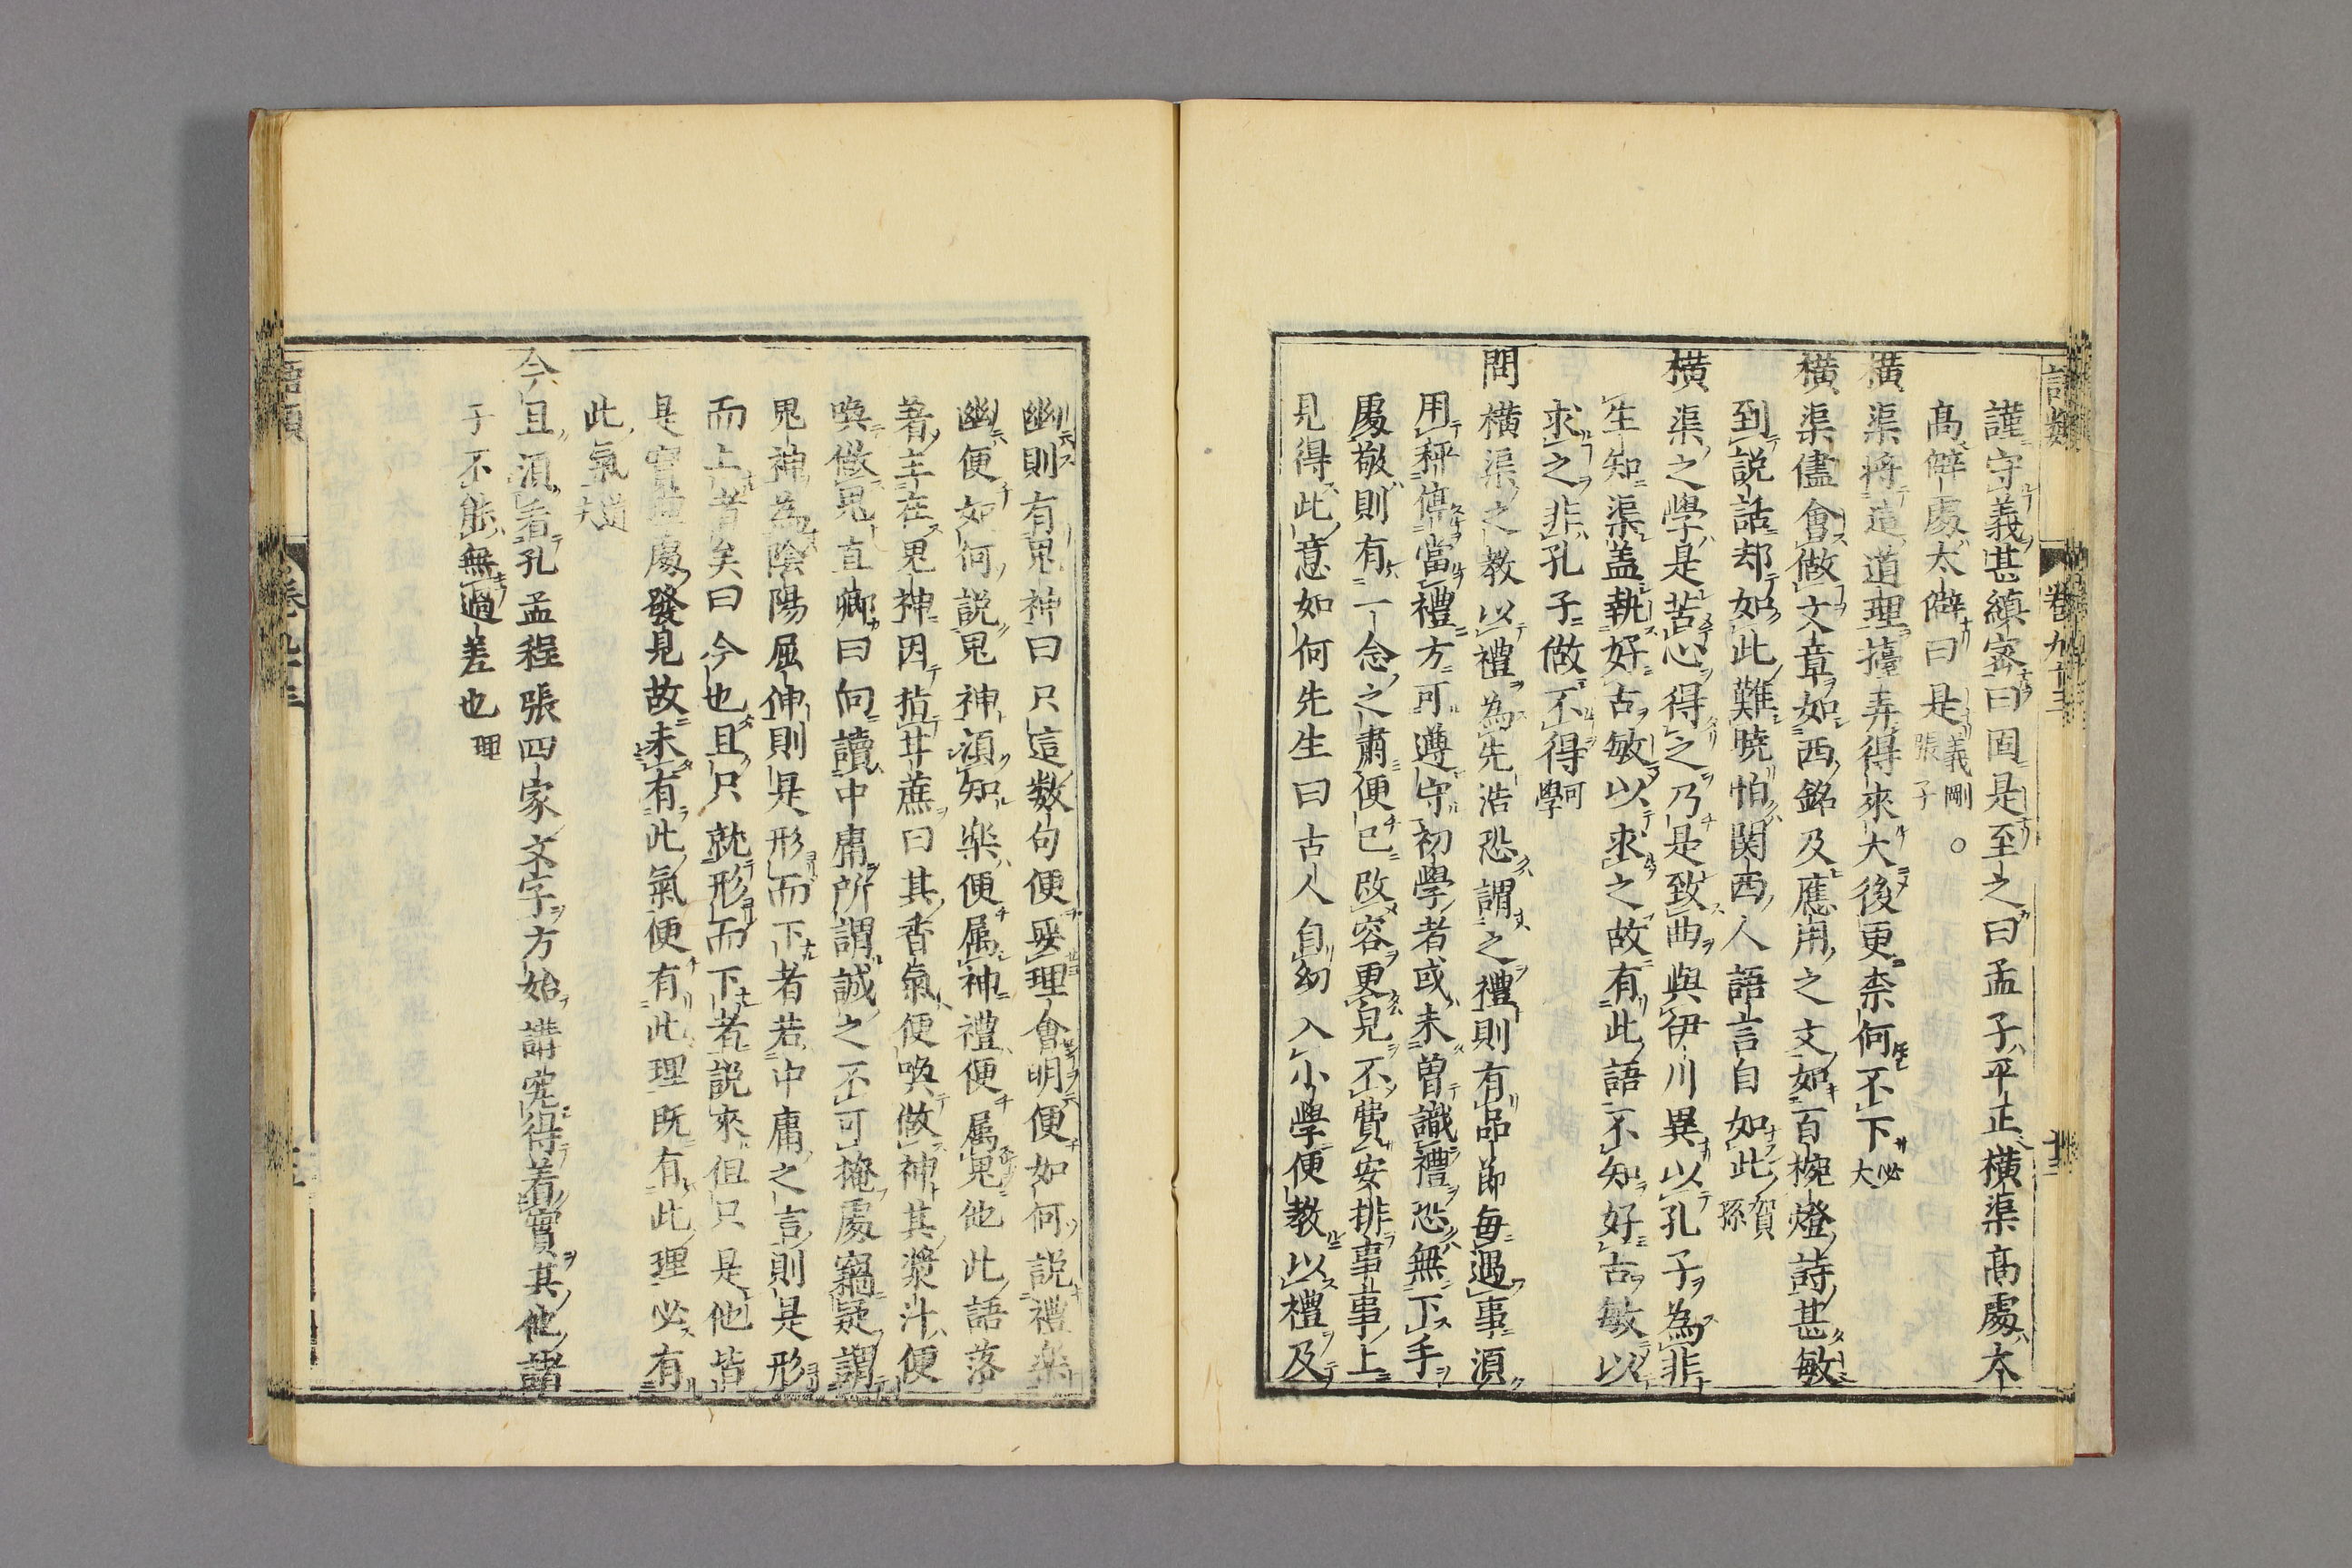 語類 卷九十三 十三
謹守義甚縝密曰固是至之曰孟子平正横渠髙處太
髙僻處太僻曰是義剛張子○
横渠將這道理擡弄得來大後更柰何不下必大
横渠儘會做文章如西銘及應用之文如百椀燈詩甚敏
到説話却如此難曉怕関西人語言自如此賀孫
横渠之學是苦心得之乃是致曲與伊川異以孔子為非
生知渠盖執好古敏以求之故有此語不知好古敏以
求之非孔子做不得可學
問横渠之教以禮為先浩恐謂之禮則有品節每遇事湏
用秤停當禮方可遵守初學者或未曽識禮恐無下手
處敬則有一念之肅便已改容更皃不費安排事事上
見得此意如何先生曰古人自幼入小學便教以禮及
幽則有鬼神曰只這数句便要理會明便如何説禮樂
幽便如何説鬼神湏知樂便属神禮便属鬼他此語落
著主在鬼神因指甘蔗曰其香氣便喚做神其漿汁便
喚做鬼直卿曰向讀中庸所謂誠之不可掩處竊疑謂
鬼神為陰陽屈伸則是形而下者若中庸之言則是形
而上者矣曰今也且只就形而下者説來但只是他皆
是實理處發見故未有此氣便有此理既有此理必有
此氣道夫
今且湏看孔孟程張四家文字方始講究得着實其他諸
子不能無過差也理
語類 卷九十三